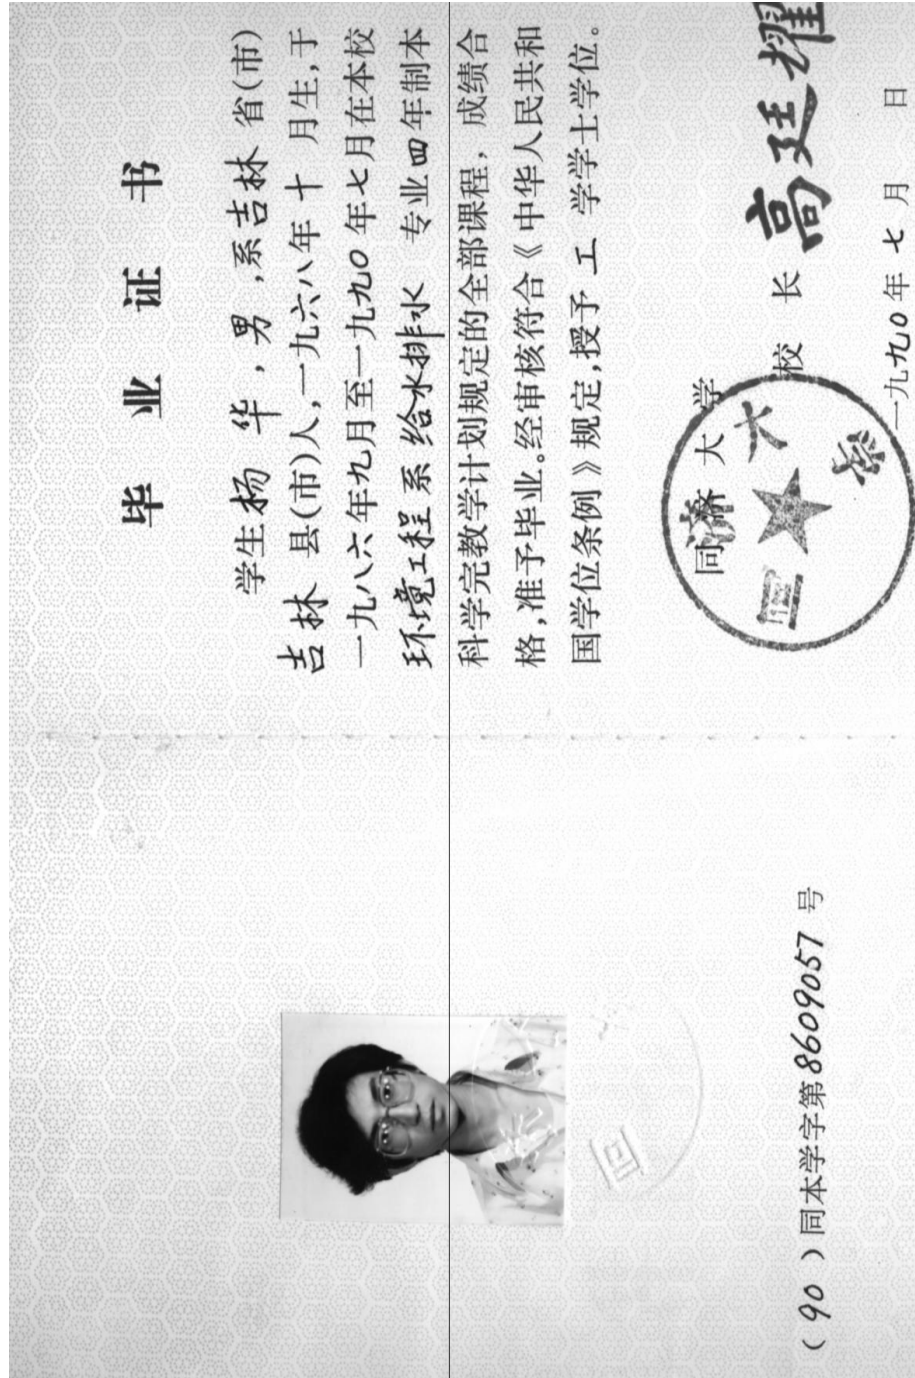 毕业证书
学生杨华，男，系吉林省(市)
吉林县(市)人，一九六八年十月生，于
一九八六年九月至一九九〇年七月在本校
环境工程系给水排水专业四年制本
科学完教学计划规定的全部课程，成绩合
格，准予毕业。经审核符合《中华人民共和
国学位条例》规定，授予工学学士学位。
同济大学
校长 高廷耀
一九九〇年七月 日
同济大学
（90）同本学字第8609057号
同